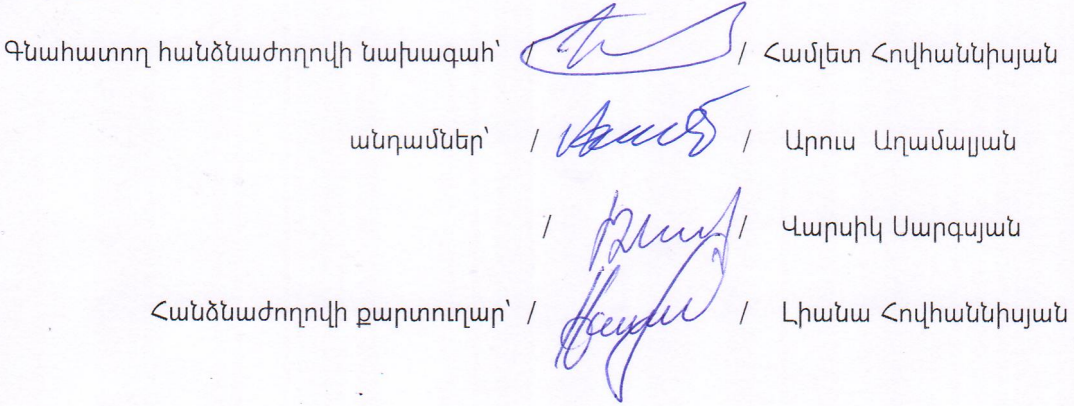 Գնահատող հանձնաժողովի նախագահ՝ / / Համլետ Հովհաննիսյան
անդամներ՝ / / Արուս Աղամալյան
/ / Վարսիկ Սարգսյան
Հանձնաժողովի քարտուղար՝ / / Լիանա Հովհաննիսյան